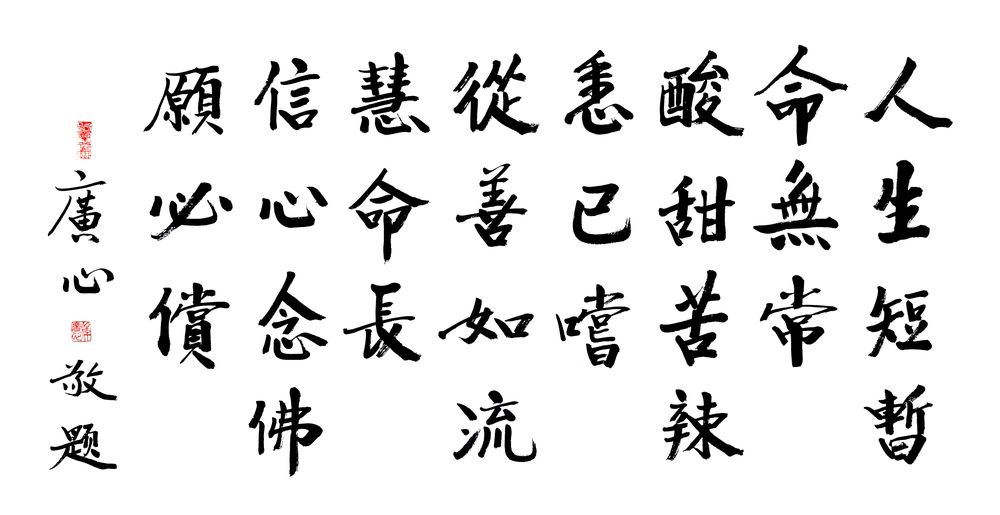 人生短暫
命無常
酸甜苦辣
悉已嚐
從善如流
慧命長
信心念佛
願必償
廣心
敬题